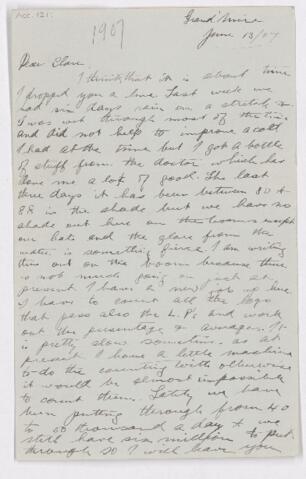 ACC. 121.
1907
Grand'Mère
June 13/07
Dear Clare.
I think that it is about time
I dropped you a line. Last week we
had six days rain on a stretch &
I was wet through most of the time
and did not help to improve a cold
I had at the time but I got a bottle
of stuff from the doctor which has
done me a lot of good. The last
three days it has been between 80 &
88 in the shade but we have no
shade out here on the booms except
our hats and the glare from the
water is something fierce. I am writing
this out on the boom because there
is not much going on just at
present. I have a new job up here
I have to count all the logs
that pass also the L.P's and work
out the percentage & averages. It
is pretty slow sometimes as at
present. I have a little machine
to do the counting with otherwise
it would be almost impossible
to count them. Lately we have
been putting through from 40
to 50 thousand a day & we
still have six million to put
through so I will leave you